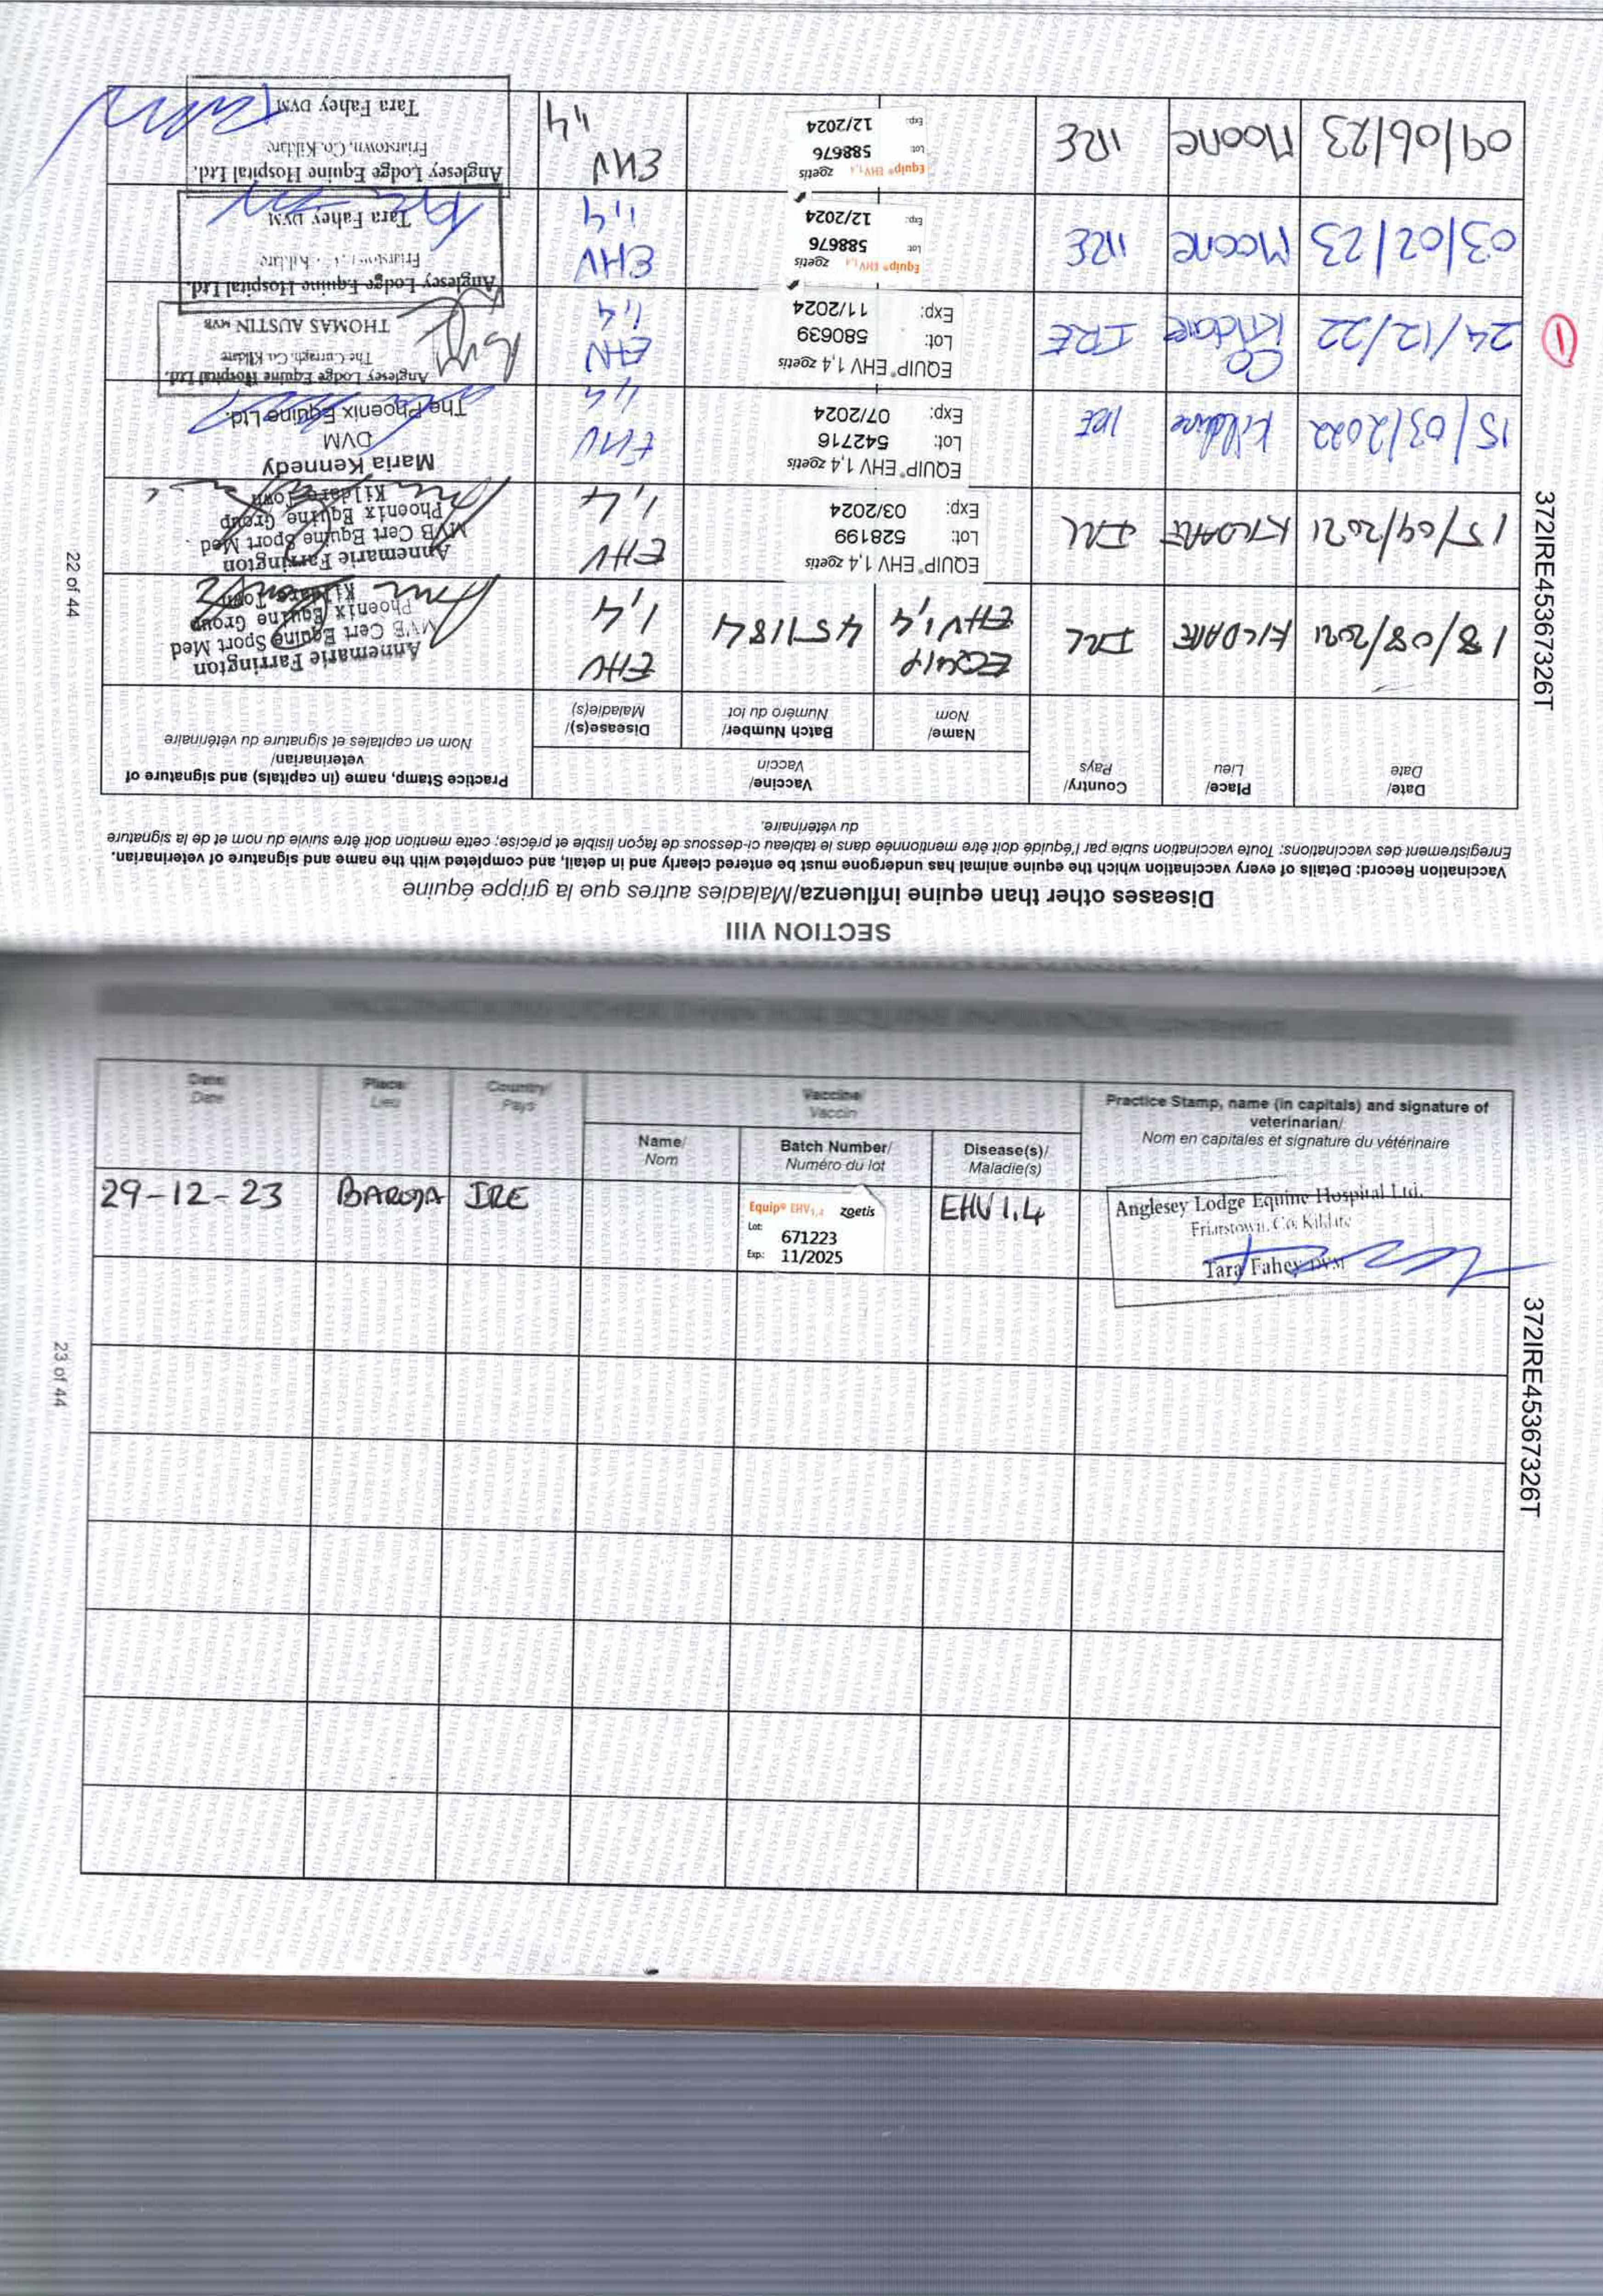 SECTION VIII
Diseases other than equine influenza/Maladies autres que la grippe équine
Vaccination Record: Details of every vaccination which the equine animal has undergone must be entered clearly and in detail, and completed with the name and signature of veterinarian.
Enregistrement des vaccinations: Toute vaccination subie par l'équidé doit être mentionnée dans le tableau ci-dessous de façon lisible et précise; cette mention doit être suivie du nom et de la signature
du vétérinaire.
Date/ Place/ Country/ Vaccine/ Practice Stamp, name (in capitals) and signature of
Date Lieu Pays Vaccin veterinarian/
Nom en capitales et signature du vétérinaire
Name/ Batch Number/ Disease(s)/
Nom Numéro du lot Maladie(s)
18/08/2021 KILDARE IRL EQUIP EHV 1,4 451184 EHV 1,4
Annemarie Farrington
MVB Cert Equine Sport Med
Phoenix Equine Group
Kildare Town
15/09/2021 KILDARE IRL
EQUIP® EHV 1,4 zoetis
Lot: 528199
Exp: 03/2024
EHV 1,4
Annemarie Farrington
MVB Cert Equine Sport Med
Phoenix Equine Group
Kildare Town
15/03/2022 Kildare IRE
EQUIP® EHV 1,4 zoetis
Lot: 542716
Exp: 07/2024
EHV 1,4
Maria Kennedy
DVM
The Phoenix Equine Ltd.
1
24/12/22 CO Kildare IRE
EQUIP® EHV 1,4 zoetis
Lot: 580639
Exp: 11/2024
EHV 1,4
Anglesey Lodge Equine Hospital Ltd.
The Curragh, Co. Kildare
THOMAS AUSTIN MVB
03/02/23 Moone IRE
Equip® EHV1,4 zoetis
Lot: 588676
Exp: 12/2024
EHV 1,4
Anglesey Lodge Equine Hospital Ltd.
Friarstown, Co. Kildare
Tara Fahey DVM
09/06/23 Moone IRE
Equip® EHV1,4 zoetis
Lot: 588676
Exp: 12/2024
EHV 1,4
Anglesey Lodge Equine Hospital Ltd.
Friarstown, Co. Kildare
Tara Fahey DVM
372IRE45367326T
22 of 44
Date/ Place/ Country/ Vaccine/ Practice Stamp, name (in capitals) and signature of
Date Lieu Pays Vaccin veterinarian/
Nom en capitales et signature du vétérinaire
Name/ Batch Number/ Disease(s)/
Nom Numéro du lot Maladie(s)
29-12-23 BARODA IRE
Equip® EHV1,4 zoetis
Lot: 671223
Exp: 11/2025
EHV 1.4
Anglesey Lodge Equine Hospital Ltd.
Friarstown, Co. Kildare
Tara Fahey DVM
372IRE45367326T
23 of 44